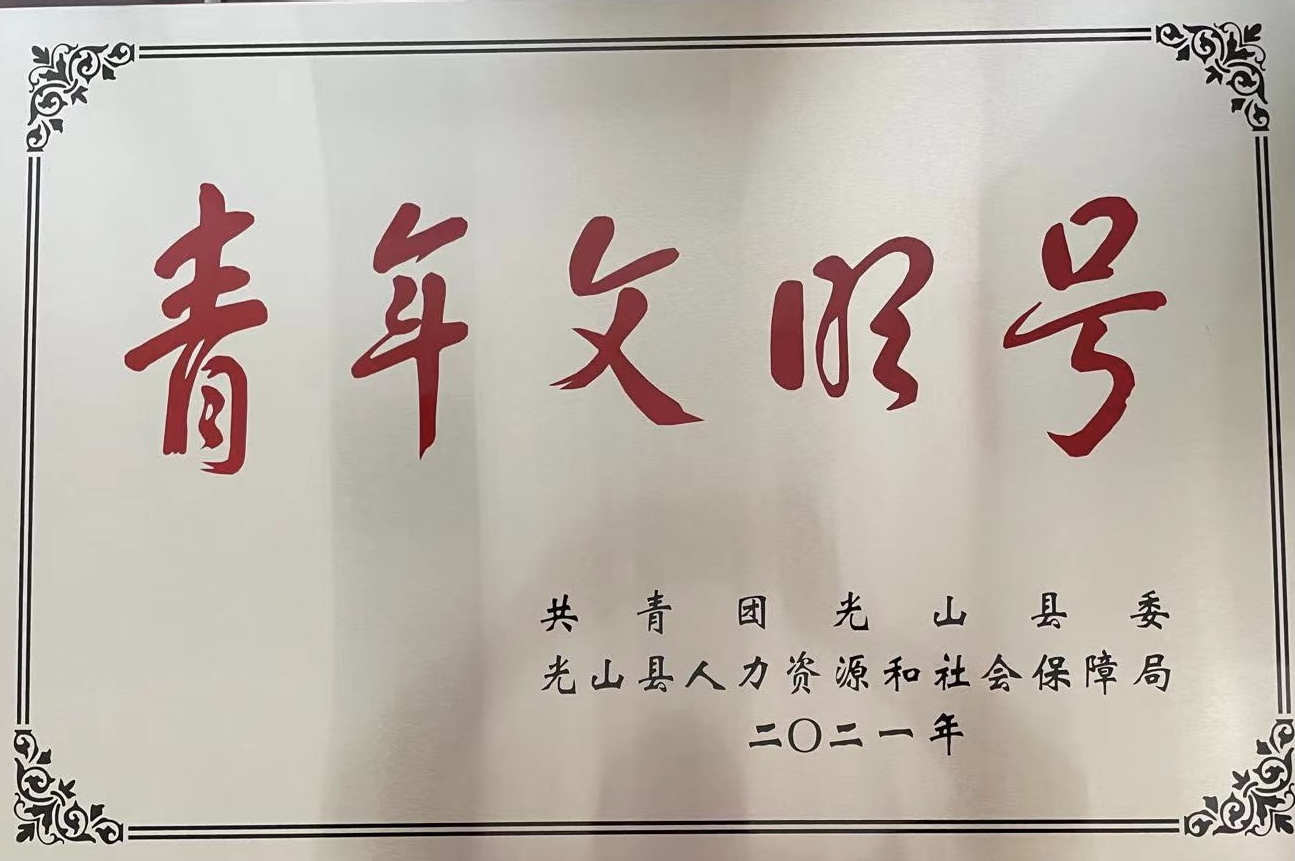 青年文明号
共青团光山县委
光山县人力资源和社会保障局
二〇二一年